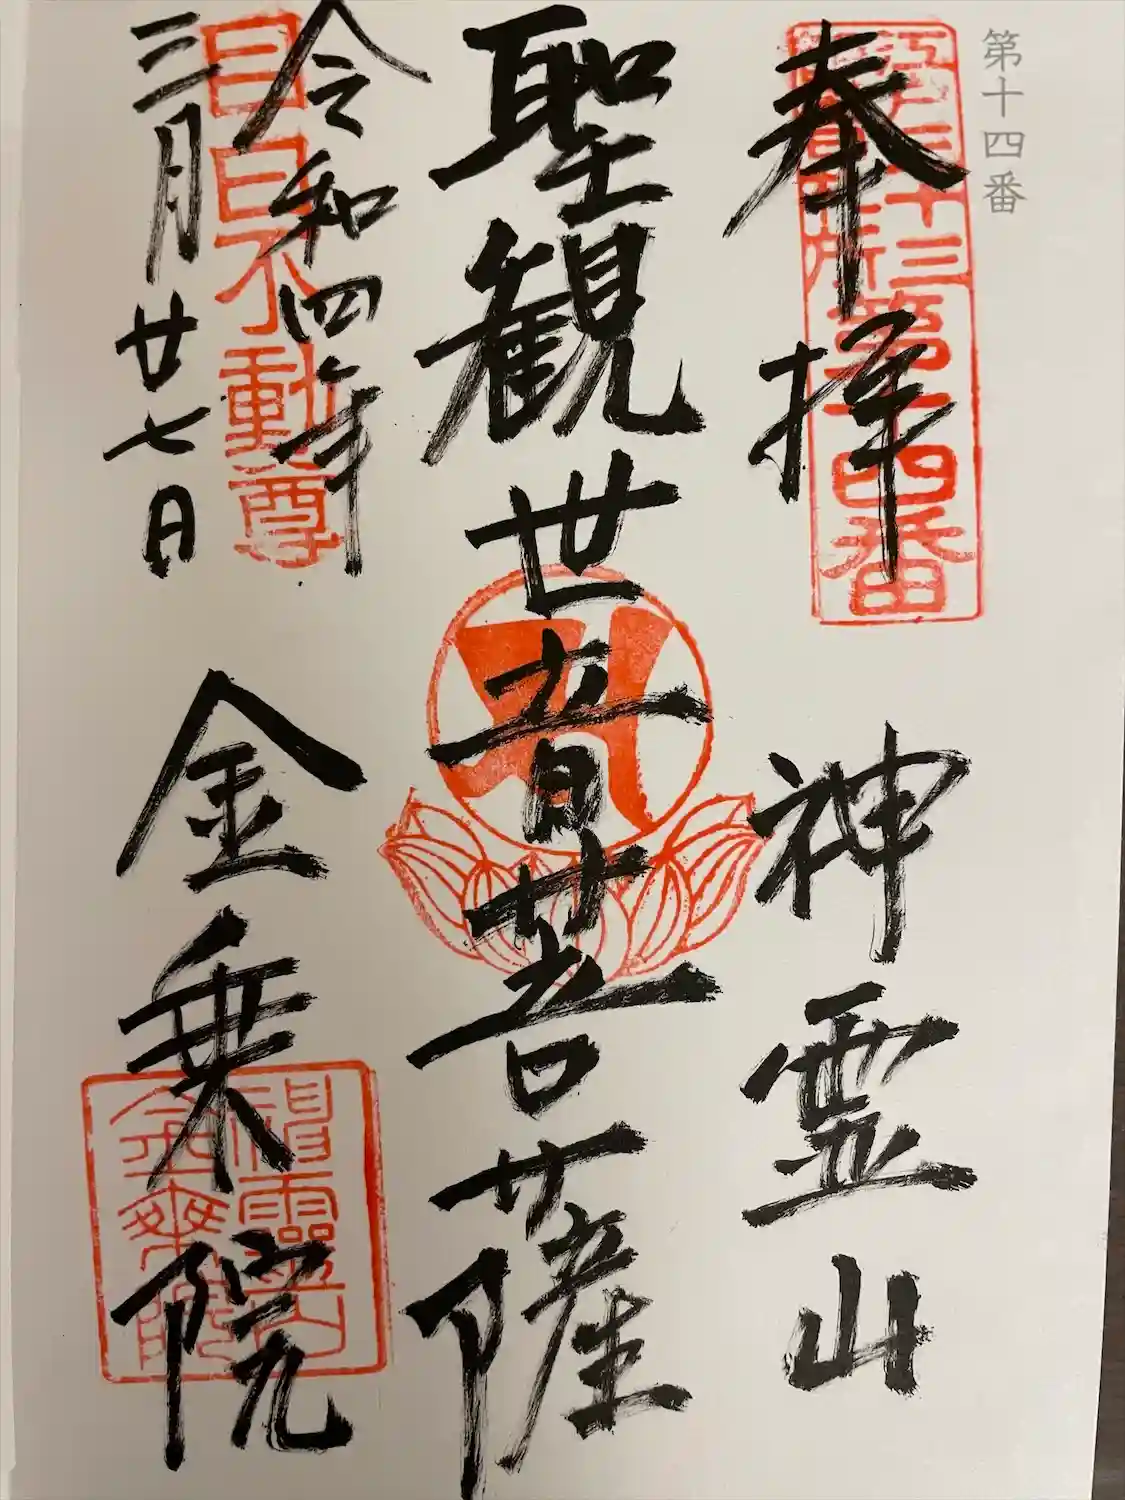 第十四番
奉拝
神霊山
聖観世音菩薩
令和四年
三月廿七日
金乗院
江戸三十三
観音札所第十四番
目白不動尊
神霊山
金乗院